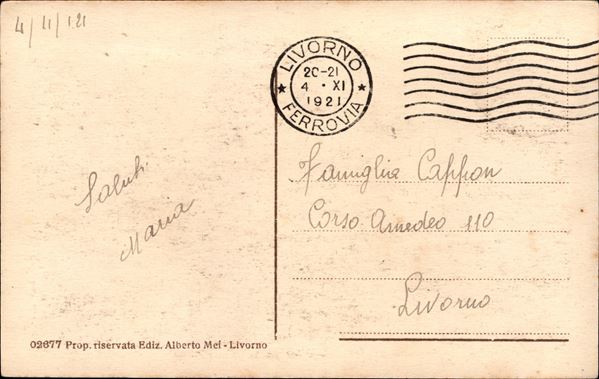 4/11/121
LIVORNO
20-21
4 • XI
1921
FERROVIA
Saluti
Maria
Famiglia Cappon
Corso Amedeo 110
Livorno
02677 Prop. riservata Ediz. Alberto Mei - Livorno